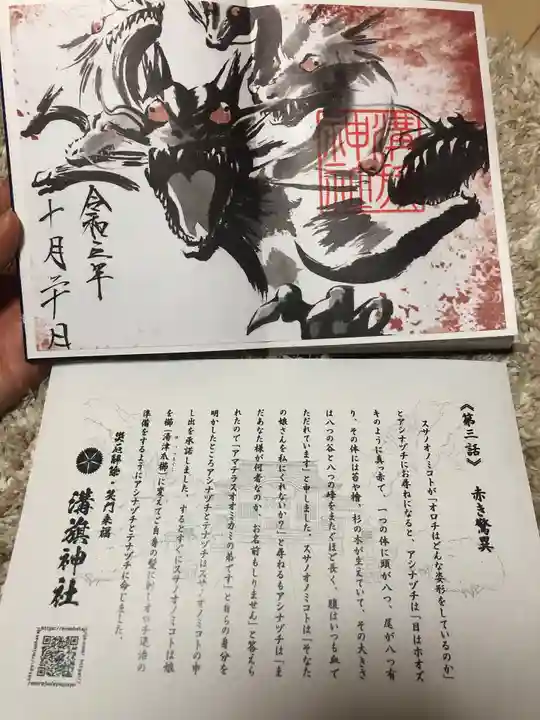 令和三年
十月二十日
溝旗神社
《第三話》 赤き驚異
スサノオノミコトが「オロチはどんな姿形をしているのか」
とアシナヅチにお尋ねになると、アシナヅチは「目はホオズ
キのように真っ赤で、一つの体に頭が八つ、尾が八つ有
り、その体には苔や檜、杉の木が生えていて、その大きさ
は八つの谷と八つの峰をまたぐほど長く、腹はいつも血で
ただれています」と申しました。スサノオノミコトは「そなた
の娘さんを私にくれないか?」と尋ねるもアシナヅチは「ま
だあなた様が何者なのか、お名前もしりません」と答えら
れたので「アマテラスオオミカミの弟です」と自らの身分を
明かしたところアシナヅチとテナヅチはスサノオノミコトの申
し出を承諾しました。するとすぐにスサノオノミコトは娘
を櫛(湯津爪櫛)に変えてご自身の髪に刺しオロチ退治の
準備をするようにアシナヅチとテナヅチに命じました。
災厄解除 笑門来福
溝旗神社